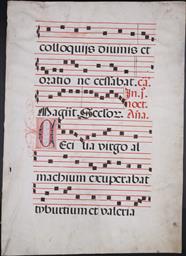 colloquijs diuinis et
oratio ne cessabat. ca.
In. ij.
noct.
Magñt. Seclor. Aña.
Ceci lia virgo al
machium exuperabat
tyburtium et valeria